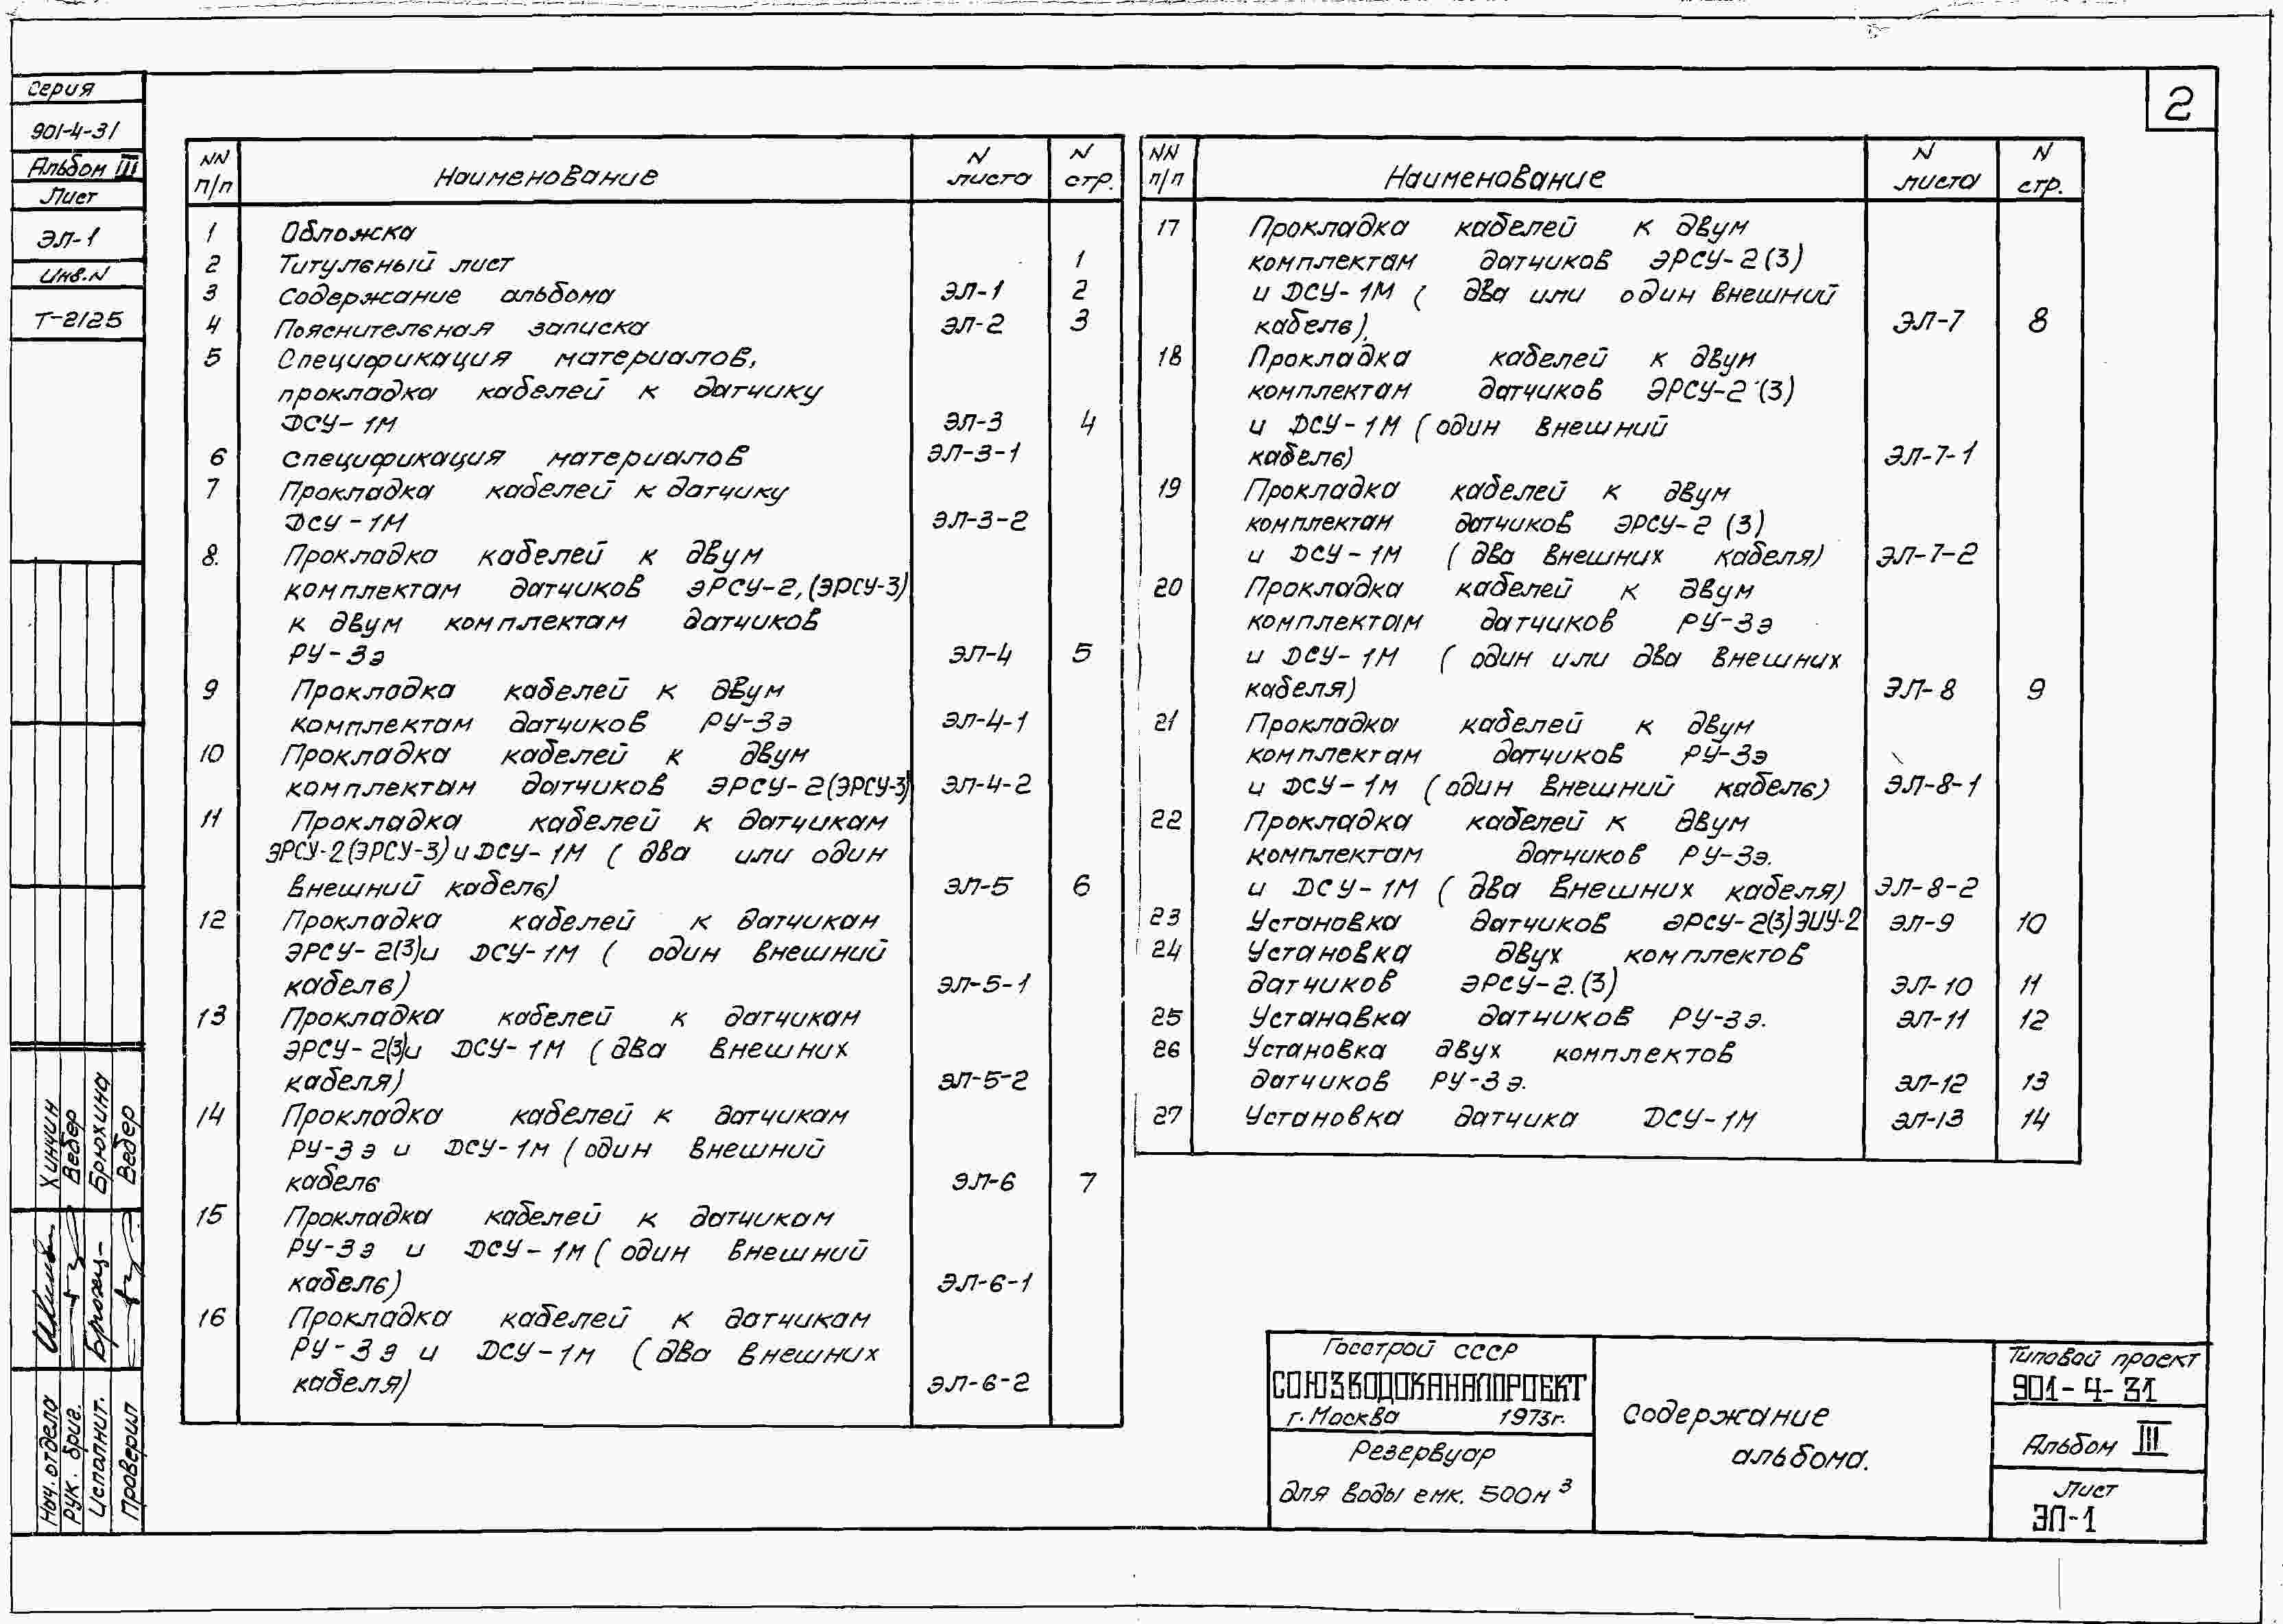 2
Серия
901-4-31
Альбом III
Лист
ЭЛ-1
Инв.N
Т-2125
NN п/п Наименование N листа N стр.
1 Обложка
2 Титульный лист 1
3 Содержание альбома ЭЛ-1 2
4 Пояснительная записка ЭЛ-2 3
5 Спецификация материалов,
прокладка кабелей к датчику
ДСУ-1М ЭЛ-3 4
6 Спецификация материалов ЭЛ-3-1
7 Прокладка кабелей к датчику
ДСУ-1М ЭЛ-3-2
8. Прокладка кабелей к двум
комплектам датчиков ЭРСУ-2,(ЭРСУ-3)
к двум комплектам датчиков
РУ-3э ЭЛ-4 5
9 Прокладка кабелей к двум
комплектам датчиков РУ-3э ЭЛ-4-1
10 Прокладка кабелей к двум
комплектам датчиков ЭРСУ-2(ЭРСУ-3) ЭЛ-4-2
11 Прокладка кабелей к датчикам
ЭРСУ-2(ЭРСУ-3) и ДСУ-1М ( два или один
внешний кабель) ЭЛ-5 6
12 Прокладка кабелей к датчикам
ЭРСУ-2(3)и ДСУ-1М ( один внешний
кабель) ЭЛ-5-1
13 Прокладка кабелей к датчикам
ЭРСУ-2(3)и ДСУ-1М (два внешних
кабеля) ЭЛ-5-2
14 Прокладка кабелей к датчикам
РУ-3э и ДСУ-1М (один внешний
кабель ЭЛ-6 7
15 Прокладка кабелей к датчикам
РУ-3э и ДСУ-1М ( один внешний
кабель) ЭЛ-6-1
16 Прокладка кабелей к датчикам
РУ-3э и ДСУ-1М (два внешних
кабеля) ЭЛ-6-2
NN п/п Наименование N листа N стр.
17 Прокладка кабелей к двум
комплектам датчиков ЭРСУ-2(3)
и ДСУ-1М ( два или один внешний
кабель), ЭЛ-7 8
18 Прокладка кабелей к двум
комплектам датчиков ЭРСУ-2(3)
и ДСУ-1М (один внешний
кабель) ЭЛ-7-1
19 Прокладка кабелей к двум
комплектам датчиков ЭРСУ-2 (3)
и ДСУ-1М ( два внешних кабеля) ЭЛ-7-2
20 Прокладка кабелей к двум
комплектам датчиков РУ-3э
и ДСУ-1М ( один или два внешних
кабеля) ЭЛ-8 9
21 Прокладка кабелей к двум
комплектам датчиков РУ-3э
и ДСУ-1М (один внешний кабель) ЭЛ-8-1
22 Прокладка кабелей к двум
комплектам датчиков РУ-3э.
и ДСУ-1М ( два внешних кабеля) ЭЛ-8-2
23 Установка датчиков ЭРСУ-2(3)ЭИУ-2 ЭЛ-9 10
24 Установка двух комплектов
датчиков ЭРСУ-2.(3) ЭЛ-10 11
25 Установка датчиков РУ-3э. ЭЛ-11 12
26 Установка двух комплектов
датчиков РУ-3э. ЭЛ-12 13
27 Установка датчика ДСУ-1М ЭЛ-13 14
Нач.отдела Хинчин
Рук. бриг. Вебер
Исполнит. Брюхина
Проверил Вебер
Госстрой СССР
СОЮЗВОДОКАНАЛПРОЕКТ
г.Москва 1973г.
Резервуар
для воды емк. 500м³
Содержание
альбома.
Типовой проект
901-4-31
Альбом III
Лист
ЭЛ-1